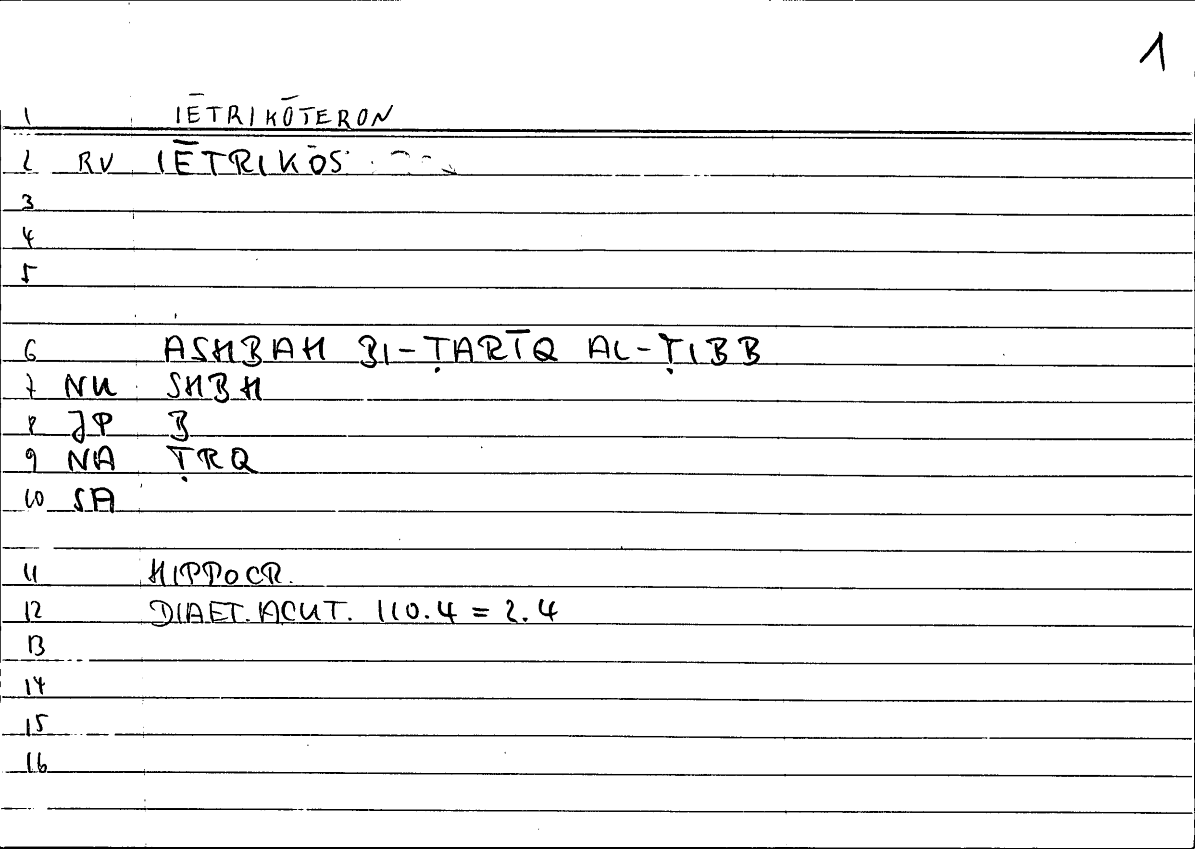 1
1 IĒTRIKŌTERON
2 RV IĒTRIKOS
3
4
5
6 ASHBAH BI-ṬARĪQ AL-ṬIBB
7 NU SHBH
8 JP B
9 NA ṬRQ
10 SA
11 HIPPOCR.
12 DIAET.ACUT. 110.4 = 2.4
13
14
15
16